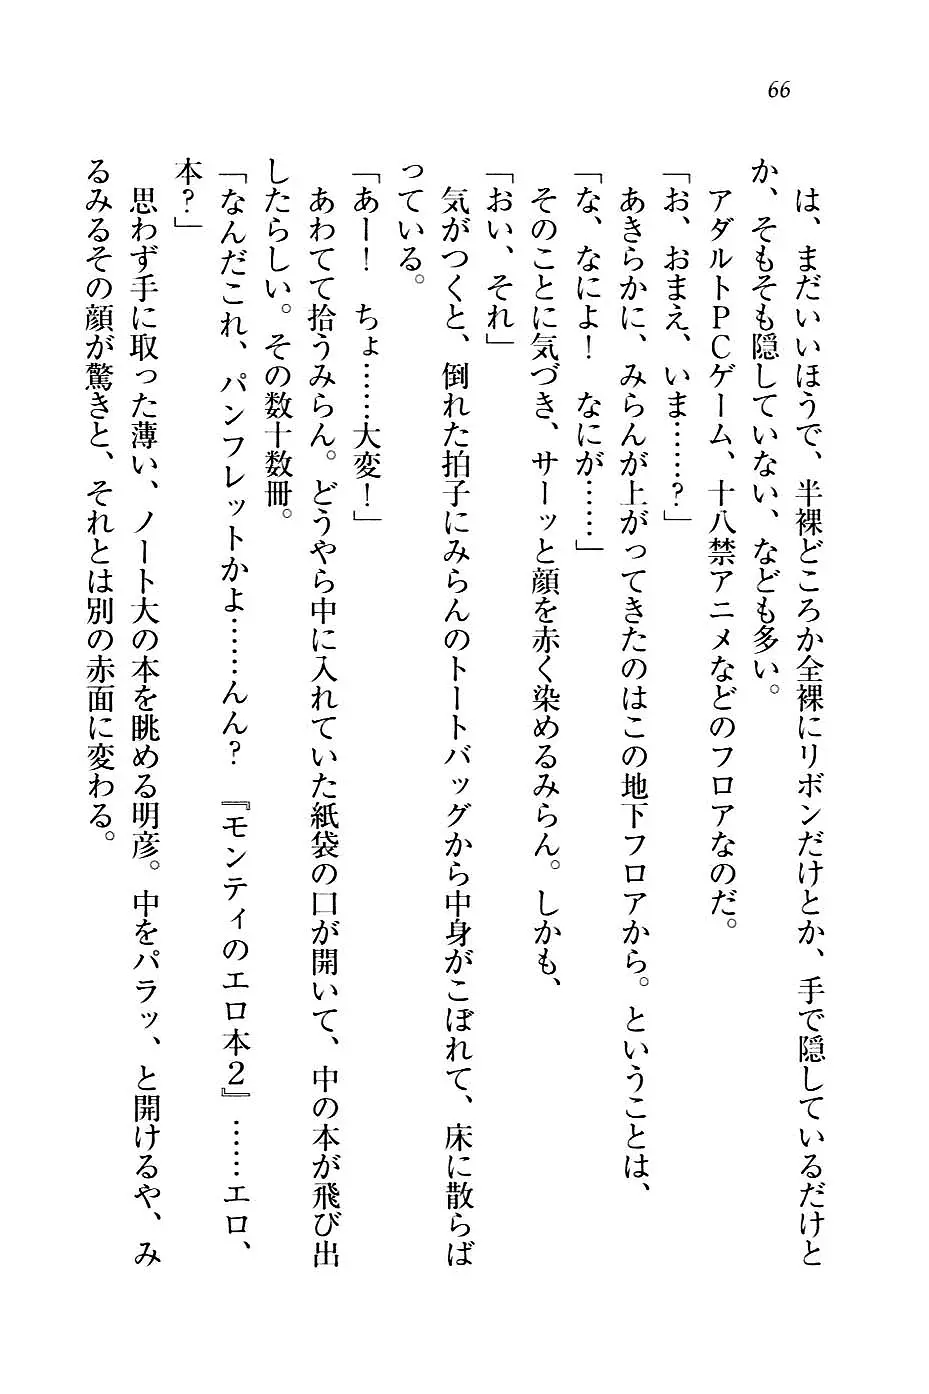 66
は、まだいいほうで、半裸どころか全裸にリボンだけとか、手で隠しているだけと
か、そもそも隠していない、なども多い。
アダルトPCゲーム、十八禁アニメなどのフロアなのだ。
「お、おまえ、いま……?」
あきらかに、みらんが上がってきたのはこの地下フロアから。ということは、
「な、なによ！　なにが……」
そのことに気づき、サーッと顔を赤く染めるみらん。しかも、
「おい、それ」
気がつくと、倒れた拍子にみらんのトートバッグから中身がこぼれて、床に散らば
っている。
「あー！　ちょ……大変！」
あわてて拾うみらん。どうやら中に入れていた紙袋の口が開いて、中の本が飛び出
したらしい。その数十数冊。
「なんだこれ、パンフレットかよ……んん？　『モンティのエロ本2』……エロ、
本？」
思わず手に取った薄い、ノート大の本を眺める明彦。中をパラッ、と開けるや、み
るみるその顔が驚きと、それとは別の赤面に変わる。